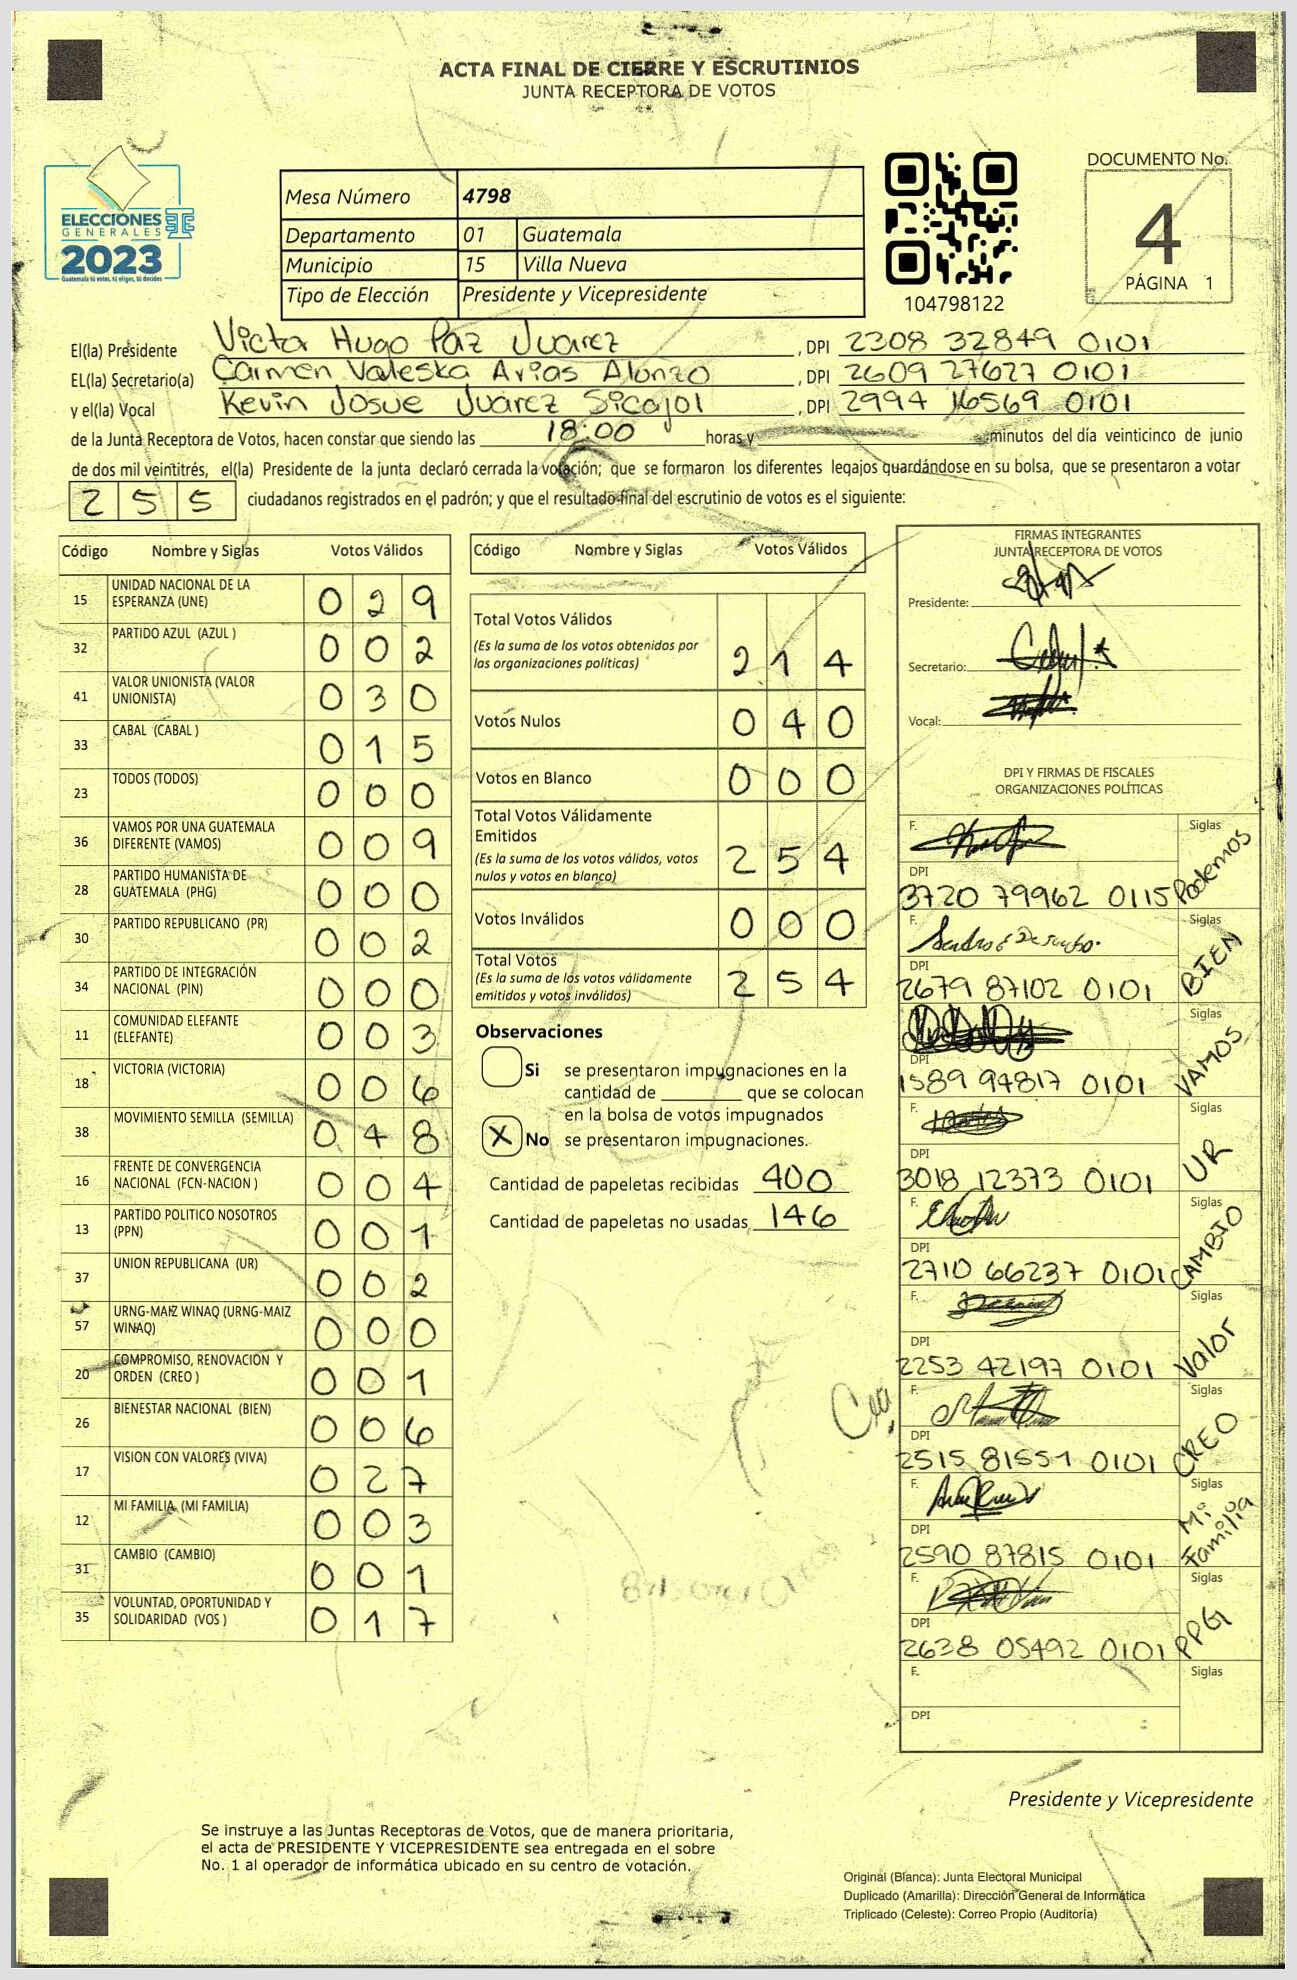 ACTA FINAL DE CIERRE Y ESCRUTINIOS
JUNTA RECEPTORA DE VOTOS
ELECCIONES
GENERALES
2023
Guatemala tú votas, tú eliges, tú decides
Mesa Número 4798
Departamento 01 Guatemala
Municipio 15 Villa Nueva
Tipo de Elección Presidente y Vicepresidente
104798122
DOCUMENTO No.
4
PÁGINA 1
El(la) Presidente Victor Hugo Paz Juarez, DPI 2308 32849 0101
EL(la) Secretario(a) Carmen Valeska Arias Alonzo, DPI 2609 27627 0101
y el(la) Vocal Kevin Josue Juárez Sicajol, DPI 2994 16569 0101
de la Junta Receptora de Votos, hacen constar que siendo las 18:00 horas y minutos del día veinticinco de junio
de dos mil veintitrés, el(la) Presidente de la junta declaró cerrada la votación; que se formaron los diferentes legajos guardándose en su bolsa, que se presentaron a votar
255 ciudadanos registrados en el padrón; y que el resultado final del escrutinio de votos es el siguiente:
Código Nombre y Siglas Votos Válidos
15 UNIDAD NACIONAL DE LA ESPERANZA (UNE) 029
32 PARTIDO AZUL (AZUL ) 002
41 VALOR UNIONISTA (VALOR UNIONISTA) 030
33 CABAL (CABAL ) 015
23 TODOS (TODOS) 000
36 VAMOS POR UNA GUATEMALA DIFERENTE (VAMOS) 009
28 PARTIDO HUMANISTA DE GUATEMALA (PHG) 000
30 PARTIDO REPUBLICANO (PR) 002
34 PARTIDO DE INTEGRACIÓN NACIONAL (PIN) 000
11 COMUNIDAD ELEFANTE (ELEFANTE) 003
18 VICTORIA (VICTORIA) 006
38 MOVIMIENTO SEMILLA (SEMILLA) 048
16 FRENTE DE CONVERGENCIA NACIONAL (FCN-NACION ) 004
13 PARTIDO POLITICO NOSOTROS (PPN) 001
37 UNION REPUBLICANA (UR) 002
57 URNG-MAIZ WINAQ (URNG-MAIZ WINAQ) 000
20 COMPROMISO, RENOVACION Y ORDEN (CREO ) 001
26 BIENESTAR NACIONAL (BIEN) 006
17 VISION CON VALORES (VIVA) 027
12 MI FAMILIA (MI FAMILIA) 003
31 CAMBIO (CAMBIO) 001
35 VOLUNTAD, OPORTUNIDAD Y SOLIDARIDAD (VOS ) 017
Código Nombre y Siglas Votos Válidos
Total Votos Válidos
(Es la suma de los votos obtenidos por las organizaciones políticas) 214
Votos Nulos 040
Votos en Blanco 000
Total Votos Válidamente Emitidos
(Es la suma de los votos válidos, votos nulos y votos en blanco) 254
Votos Inválidos 000
Total Votos
(Es la suma de los votos válidamente emitidos y votos inválidos) 254
Observaciones
Si se presentaron impugnaciones en la
cantidad de que se colocan
en la bolsa de votos impugnados
X No se presentaron impugnaciones.
Cantidad de papeletas recibidas 400
Cantidad de papeletas no usadas 146
FIRMAS INTEGRANTES
JUNTA RECEPTORA DE VOTOS
Presidente:
Secretario:
Vocal:
DPI Y FIRMAS DE FISCALES
ORGANIZACIONES POLÍTICAS
F. Siglas
DPI 3720 79962 0115 Podemos
F. Siglas
DPI 2679 87102 0101 BIEN
Siglas
DPI 1589 94817 0101 VAMOS
F. Siglas
DPI 3018 12373 0101 UR
F. Siglas
DPI 2710 66237 0101 CAMBIO
F. Siglas
DPI 2253 42197 0101 Valor
F. Siglas
DPI 2515 81551 0101 CREO
F. Siglas
DPI 2590 87815 0101 Mi Familia
F. Siglas
DPI 2638 05492 0101 PPG
F. Siglas
DPI
Presidente y Vicepresidente
Se instruye a las Juntas Receptoras de Votos, que de manera prioritaria,
el acta de PRESIDENTE Y VICEPRESIDENTE sea entregada en el sobre
No. 1 al operador de informática ubicado en su centro de votación.
Original (Blanca): Junta Electoral Municipal
Duplicado (Amarilla): Dirección General de Informática
Triplicado (Celeste): Correo Propio (Auditoría)